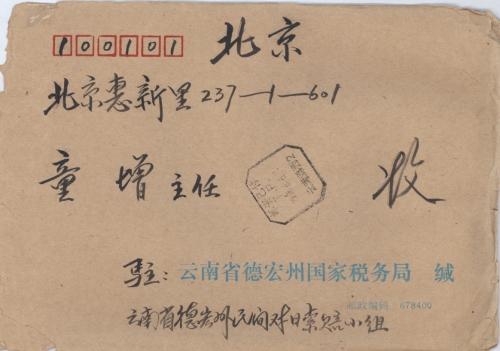 100101 北京
北京惠新里237-1-601
童增主任 收
驻: 云南省德宏州国家税务局 缄
邮政编码: 678400
云南省德宏州民间对日索赔小组